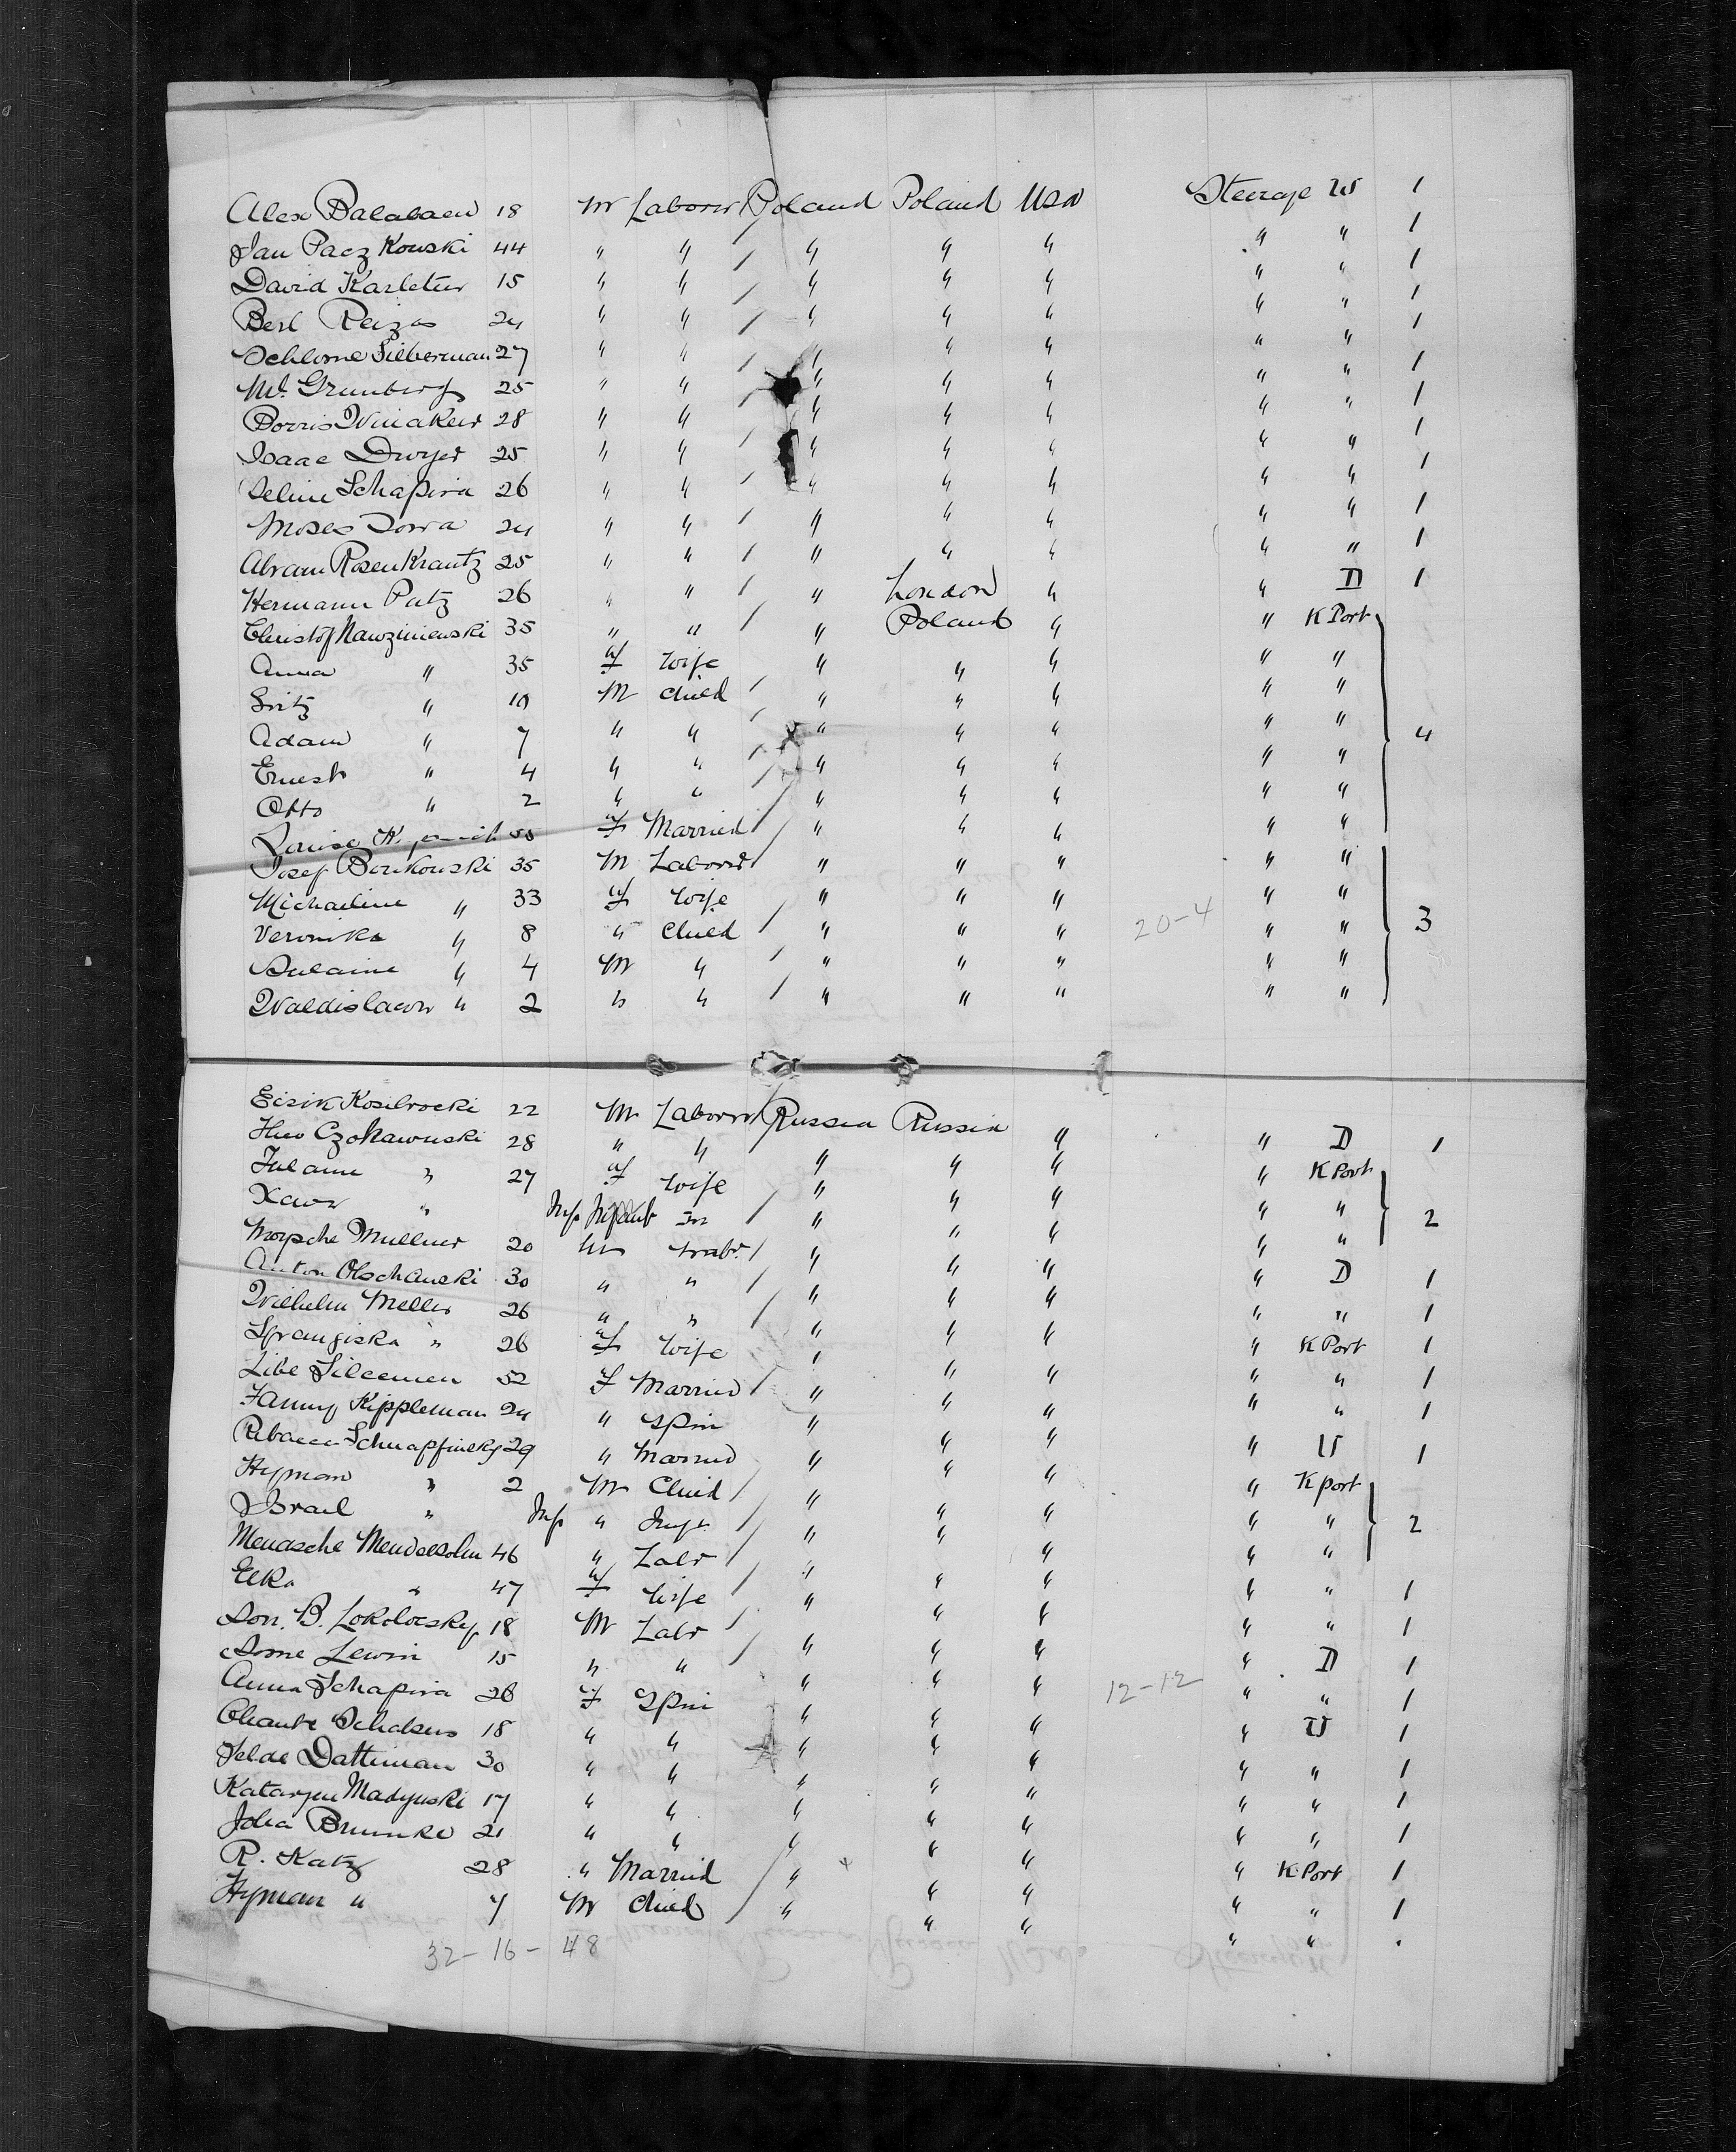 Alex Balabaew 18 M Laborer Poland Poland USA Steerage W 1
Jan Paczkowski 44 " " " " " " " 1
David Karleteur 15 " " " " " " " 1
Berl Reizas 24 " " " " " " " 1
Schlome Silberman 27 " " " " " " " 1
M. Grunberg 25 " " " " " " " 1
Borris Winakew 28 " " " " " " " 1
Isaac Dwyer 25 " " " " " " " 1
Seline Schapira 26 " " " " " " " 1
Moses Dorra 24 " " " " " " " 1
Abram Rosenkrantz 25 " " " " " " " 1
Hermann Putz 26 " " " London " " D 1
Christof Nawziniewski 35 " " " Poland " " K Port
Anna " 35 f Wife " " " " "
Fritz " 10 M Child " " " " "
Adam " 7 " " " " " " " 4
Ernest " 4 " " " " " " "
Otto " 2 " " " " " " "
Louise f Married " " " " "
Josef Bonkowski 35 M Laborer " " " " "
Michaeline " 33 f Wife " " " " "
Veronika " 8 " Child " " " 20-4 " " 3
Sulaine " 4 M " " " " " "
Waldislaw " 2 " " " " " " "
Eisik Kosilrocki 22 M Laborer Russia Russia " " D 1
Czokawuski 28 " " " " " " K Port
Julaine " 27 f Wife " " " " " 2
Xawr " Inf Infant m " " " " "
Morsche Mullner 20 M Labr " " " " D 1
Anton Olschanski 30 " " " " " " " 1
Wilhelm Meller 26 " " " " " " K Port 1
Franziska " 26 f Wife " " " " " 1
Libe Sileemen 52 f Married " " " " " 1
Fanny Kippleman 24 " Spin " " " " U 1
Rebacca Schnapfinsky 29 " Married " " " " K port
Hyman " 2 M Child " " " " " 2
Israel " Inf " Inft " " " " "
Menasche Mendelsohn 46 " Labr " " " " " 1
Elka " 47 f Wife " " " " " 1
Son. B. Lokolocsky 18 M Labr " " " " D 1
Srome Lewin 15 " " " " " " " 1
Anna Schapira 28 f Spin " " " 12-12 " U 1
Chante Schaksus 18 " " " " " " " 1
Jelde Datteman 30 " " " " " " " 1
Kataryn Madynski 17 " " " " " " " 1
Joha Brumke 21 " " " " " " K Port 1
R. Katz 28 " Married " " " " " 1
Hyman " 7 M Child " " " " "
32-16-48